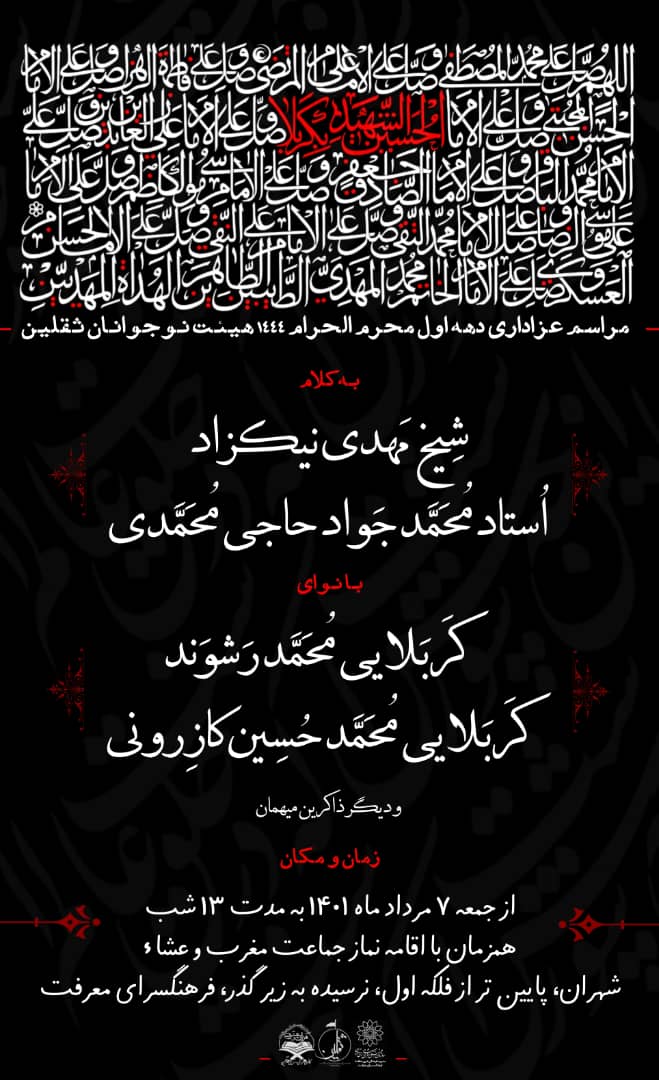 اللهم صل علی محمد المصطفی وصل علی الامام علی المرتضی وصل علی فاطمة الزهرا وصل علی الامام
الحسن المجتبی وصل علی الامام الحسین الشهید بکربلا وصل علی الامام علی بن الحسین زین العابدین وصل علی
الامام محمد الباقر وصل علی الامام جعفر الصادق وصل علی الامام موسی الکاظم وصل علی الامام
علی بن موسی الرضا وصل علی الامام محمد التقی وصل علی الامام علی النقی وصل علی الامام الحسن
العسکری وصل علی الامام الخاتم محمد المهدی الطیبین الطاهرین الهداة المهدیین
مراسم عزاداری دهه اول محرم الحرام ۱۴۴۴ هیئت نوجوانان ثقلین
به کلام
شِیخ مَهدی نیکزاد
اُستاد مُحَمَّد جَواد حاجی مُحَمَّدی
با نوای
کَربَلایی مُحَمَّد رَشوَند
کَربَلایی مُحَمَّد حُسِین کازِرونی
و دیگر ذاکرین میهمان
زمان و مکان
از جمعه ۷ مرداد ماه ۱۴۰۱ به مدت ۱۳ شب
همزمان با اقامه نماز جماعت مغرب و عشاء
شهران، پایین تر از فلکه اول، نرسیده به زیر گذر، فرهنگسرای معرفت